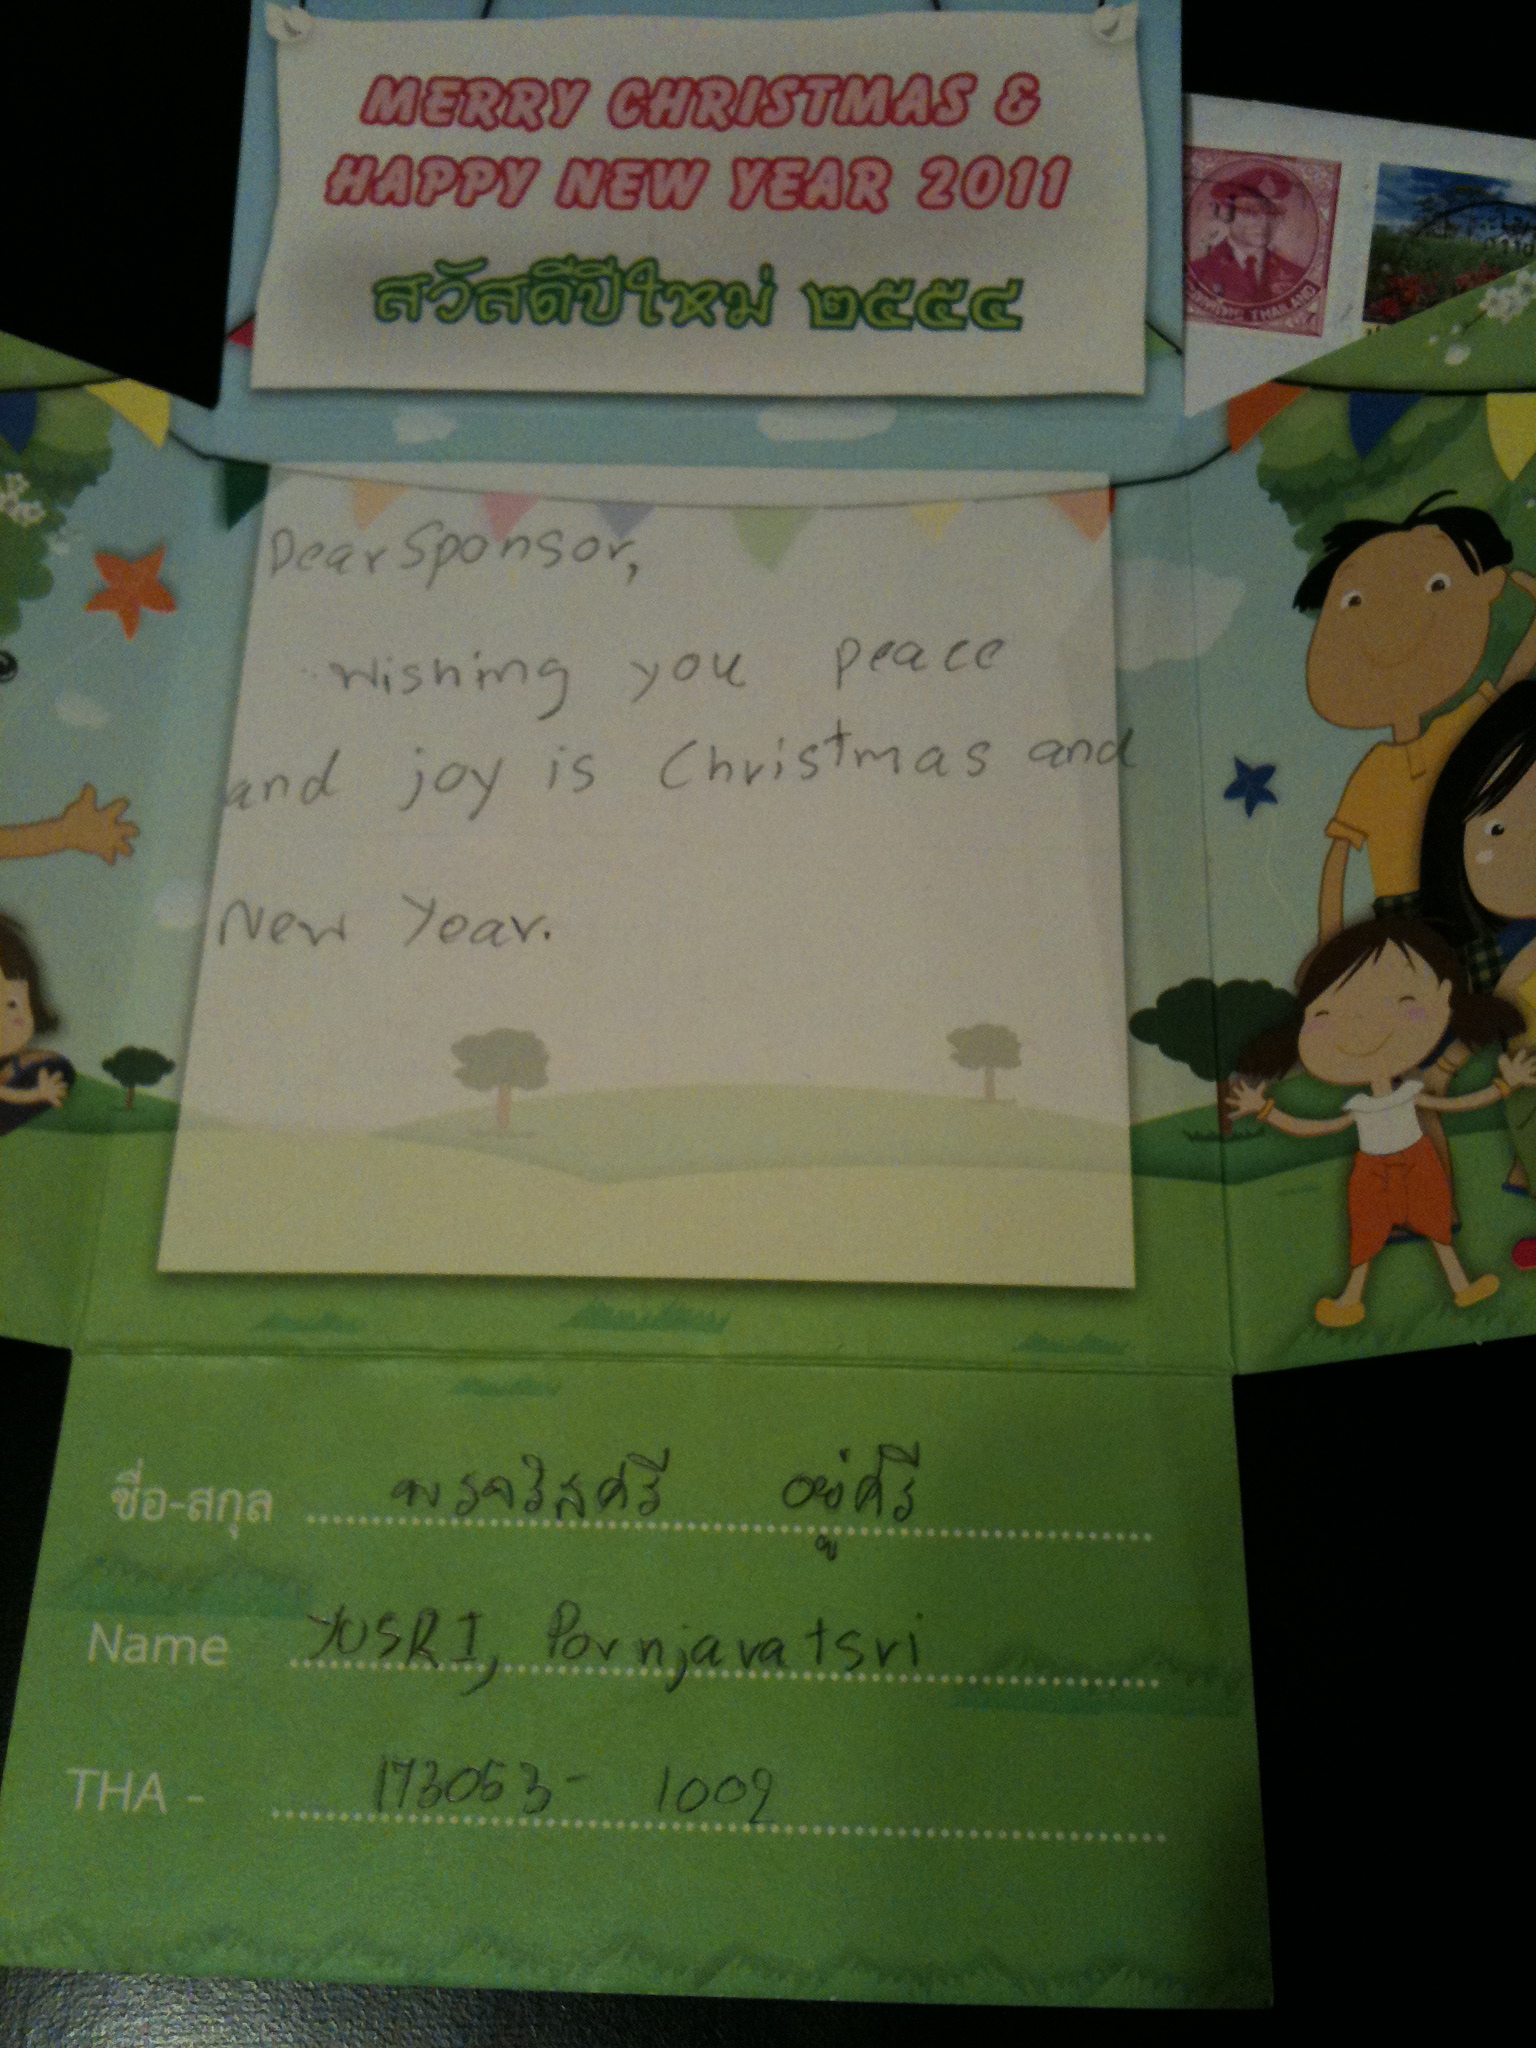 MERRY CHRISTMAS &
HAPPY NEW YEAR 2011
สวัสดีปีใหม่ ๒๕๕๔
THAILAND
Dear Sponsor,
Wishing you peace
and joy is Christmas and
New Year.
ชื่อ-สกุล อยู่ศรี
Name YUSRI, Pornjavatsri
THA - 173053- 1002